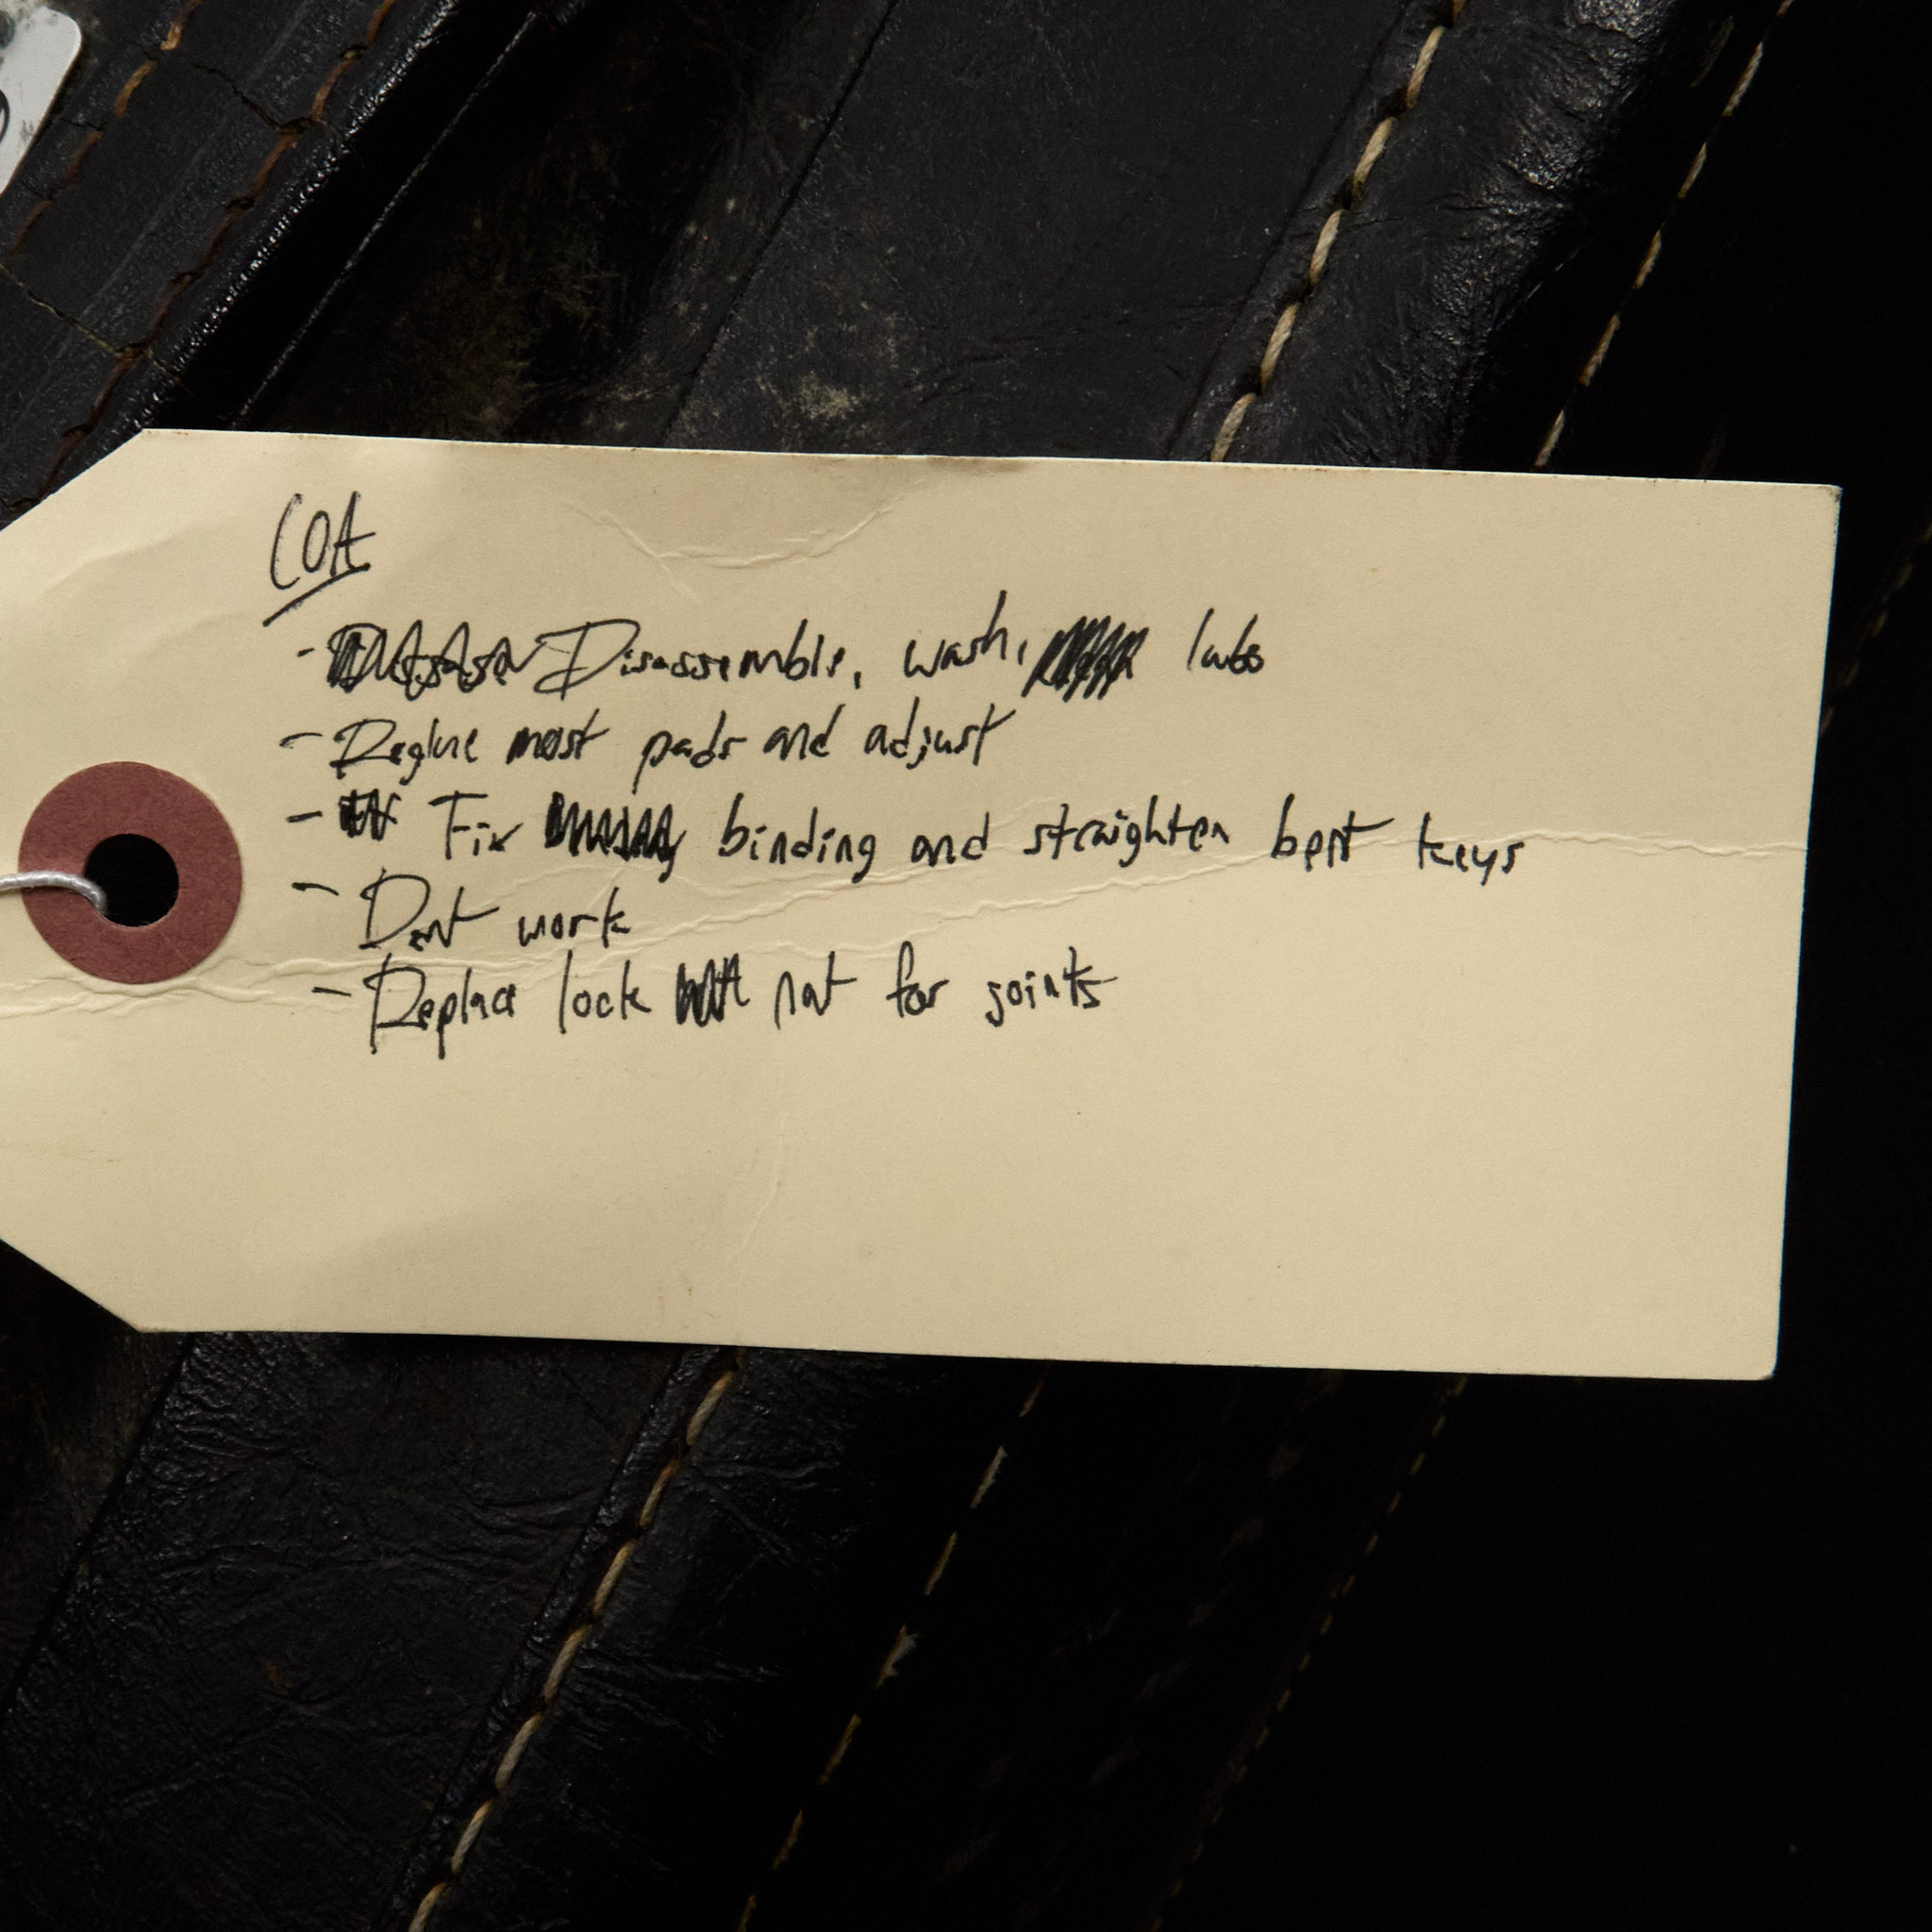 COA
- Disassemble, wash, lube
- Reglue most pads and adjust
- Fix binding and straighten bent keys
- Dent work
- Replace lock nut for joints